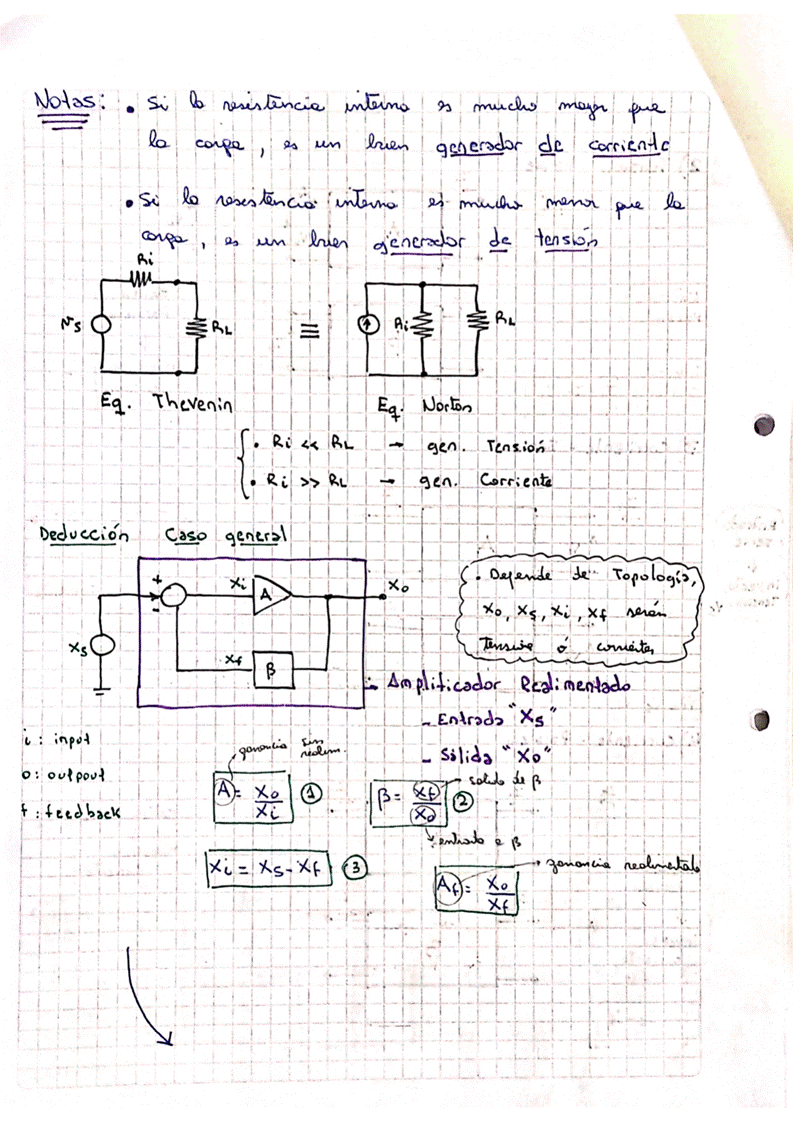 Notas: • Si la resistencia interna es mucho mayor que
la carga, es un buen generador de corriente
• Si la resistencia interna es mucho menor que la
carga, es un buen generador de tensión
Ri
Vs
RL
≡
Ri
RL
Eq. Thevenin
Eq. Norton
• Ri << RL → gen. Tensión
• Ri >> RL → gen. Corriente
Deducción Caso general
+
-
Xi
A
Xo
Xs
Xf
β
• Depende de Topología,
Xo, Xs, Xi, Xf serán
ó
Amplificador Realimentado
- Entrada "Xs"
- Sálida "Xo"
i : input
o : outpout
f : feedback
ganancia sin
realim.
A = Xo/Xi ①
β = Xf/Xo ②
salida de β
entrada a β
Xi = Xs - Xf ③
Af = Xo/Xf
ganancia